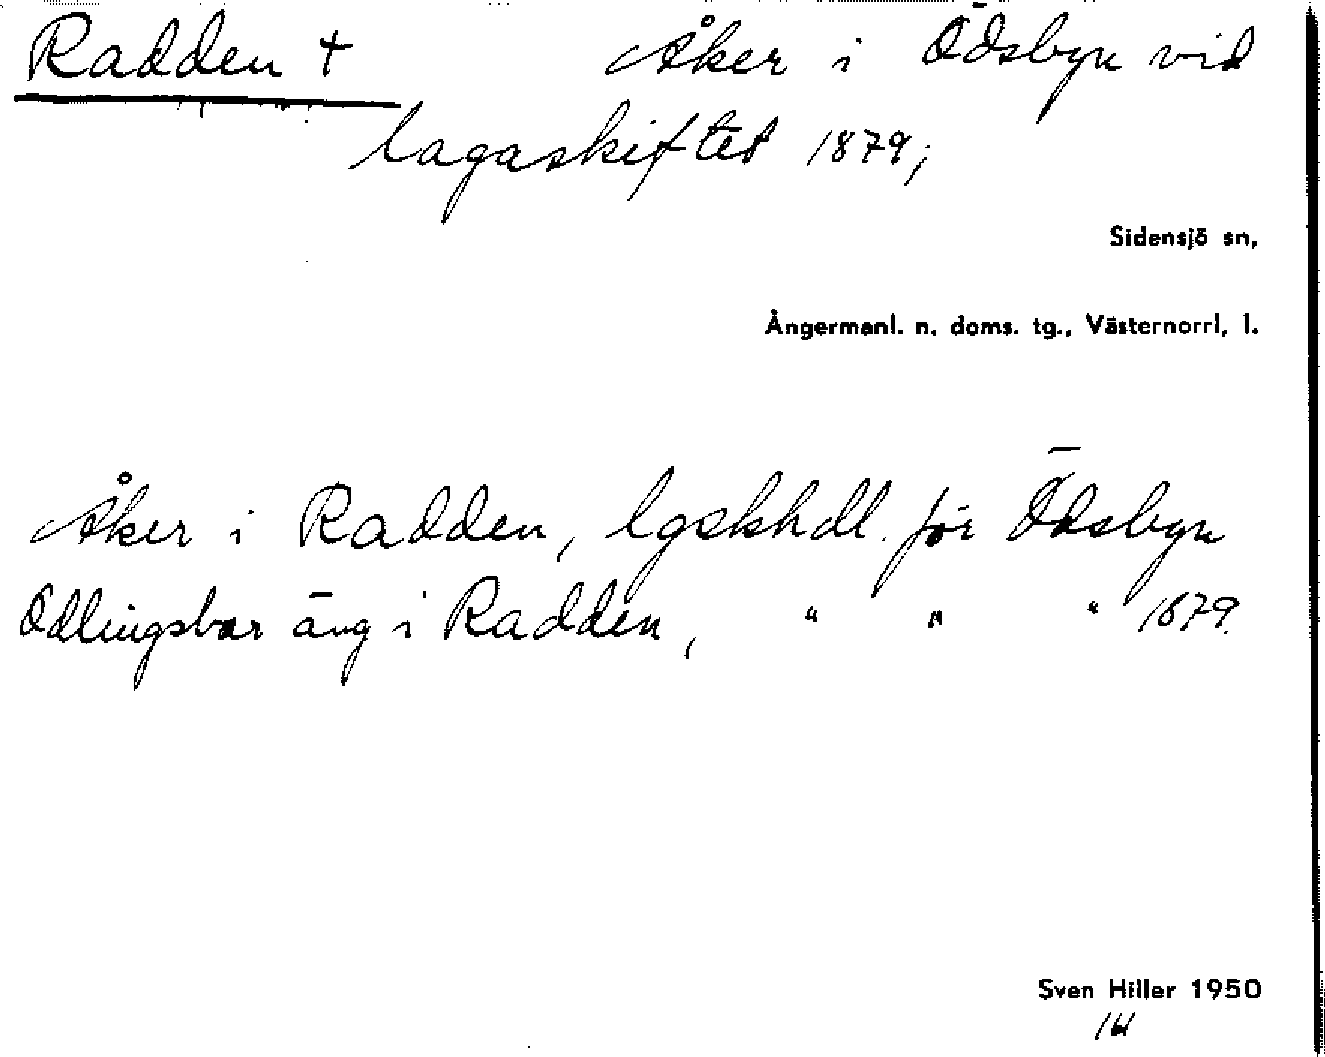 Radden + Åker i Ödsbyn vid
lagaskiftet 1879;
Sidensjö sn,
Ångermanl. n. doms. tg., Västernorrl. l.
Åker i Radden, lgskhdl. för Ödsbyn
Odlingsbar äng i Radden, " " " 1879.
Sven Hiller 1950